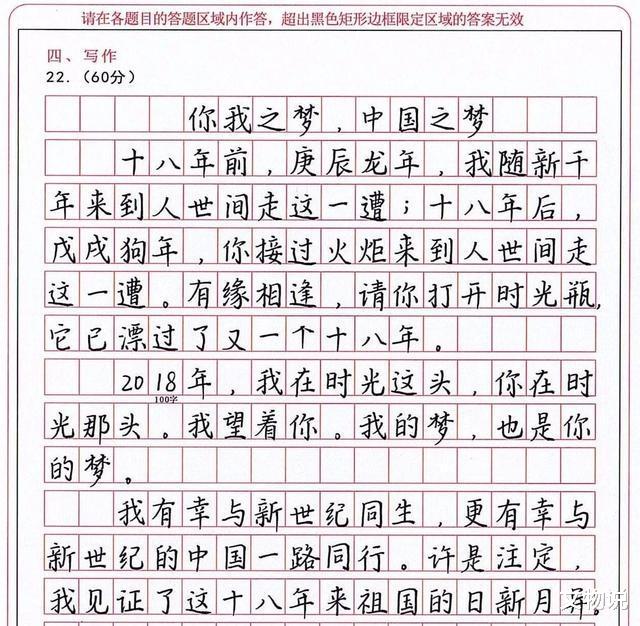 请在各题目的答题区域内作答，超出黑色矩形边框限定区域的答案无效
四、写作
22.（60分）
你我之梦，中国之梦
十八年前，庚辰龙年，我随新千
年来到人世间走这一遭；十八年后，
戊戌狗年，你接过火炬来到人世间走
这一遭。有缘相逢，请你打开时光瓶，
它已漂过了又一个十八年。
2018年，我在时光这头，你在时
100字
光那头。我望着你。我的梦，也是你
的梦。
我有幸与新世纪同生，更有幸与
新世纪的中国一路同行。许是注定，
我见证了这十八年来祖国的日新月异。
文物说